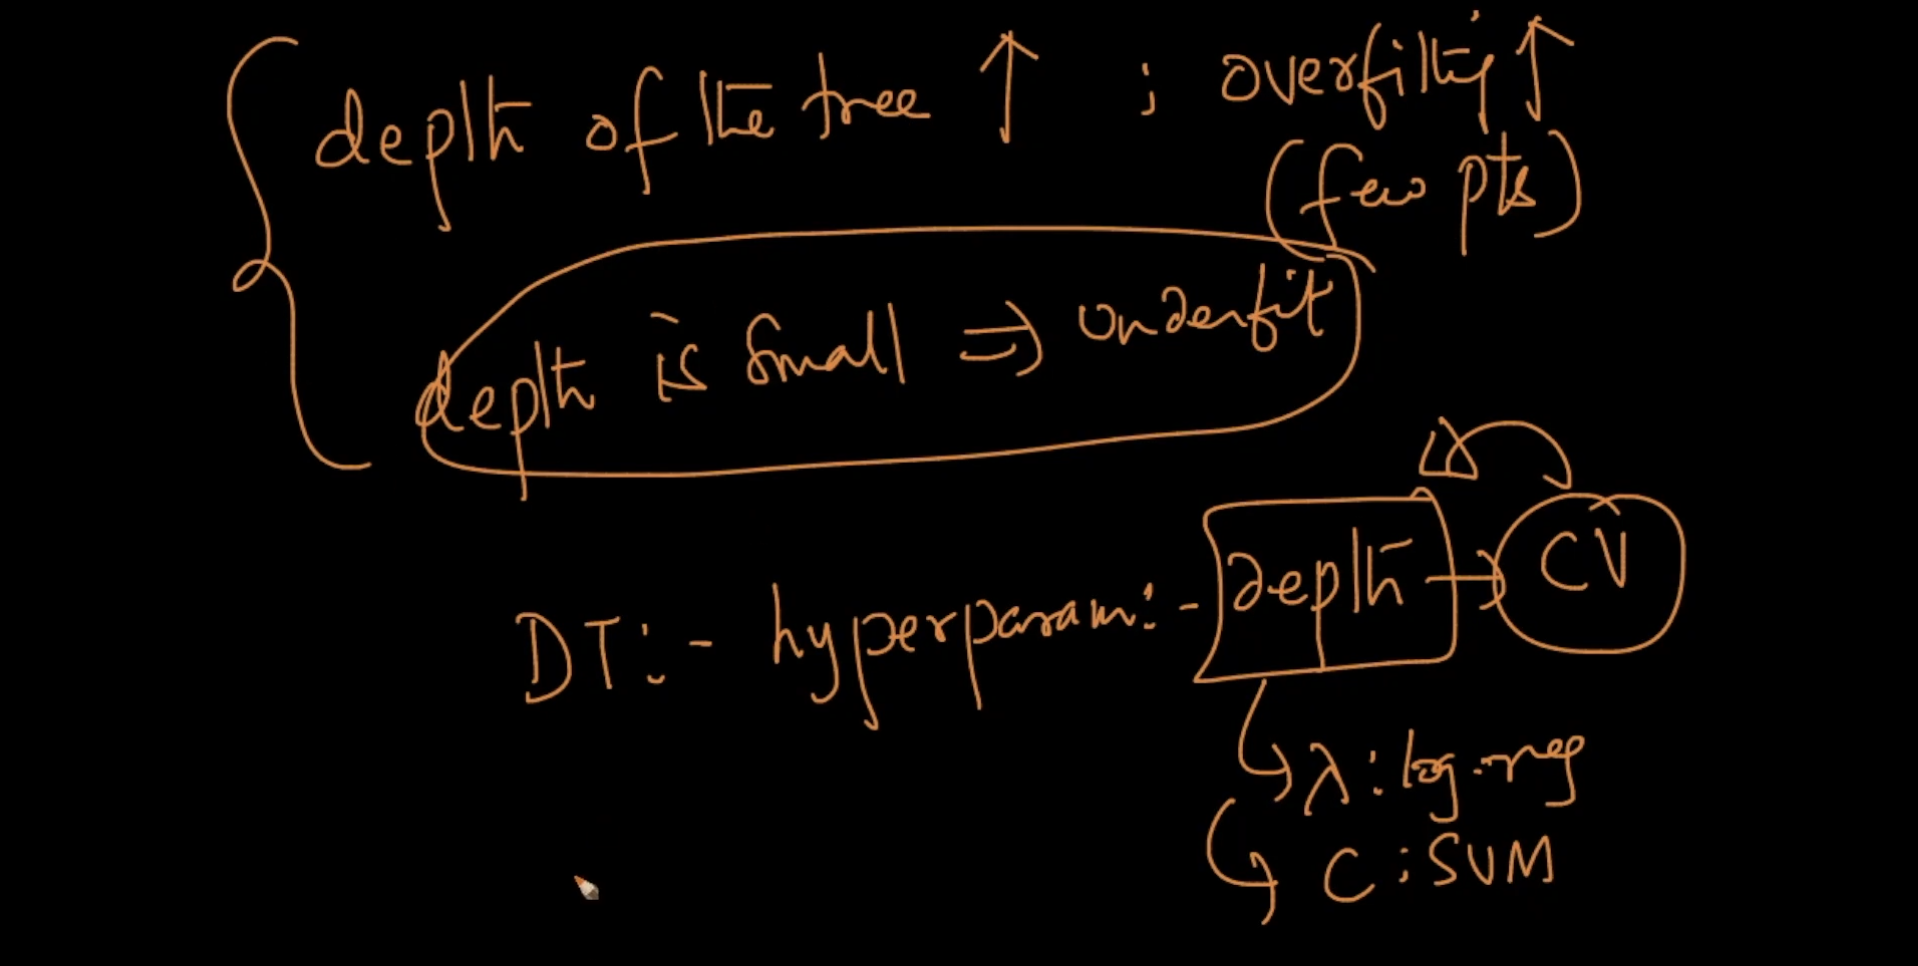 depth of the tree ↑ ; overfitting ↑
(few pts)
depth is small ⇒ underfit
DT:- hyperparam:- depth → CV
λ: log-reg
C: SVM